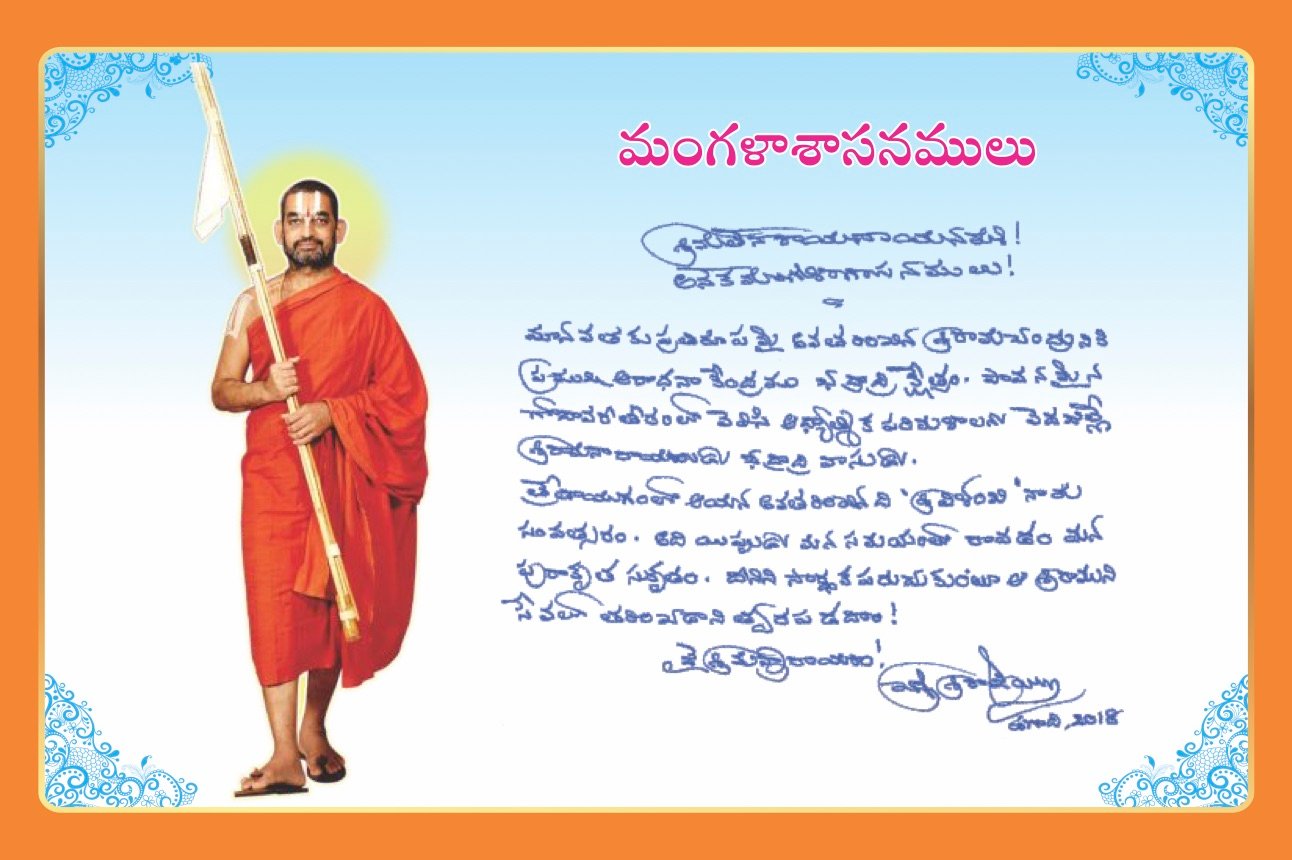 మంగళాశాసనములు
శ్రీమతే నారాయణాయ నమః!
అనేక మంగళాశాసనాములు!
=
మానవతకు ప్రతిరూపమై అవతరించిన శ్రీరామచంద్రునికి
ప్రముఖ ఆరాధనా కేంద్రము భద్రాద్రి క్షేత్రం. పావనమైన
గోదావరీ తీరంలో వెలిసి ఆధ్యాత్మిక పరిమళాలను వెదజల్లే
శ్రీరామనారాయణుడు భద్రాద్రి వాసుడు.
త్రేతాయుగంలో ఆయన అవతరించినది 'శ్రీ విళంబి' నామ
సంవత్సరం. అది యిప్పుడు మన సమయంలో రావడం మన
పురాకృత సుకృతం. దీనిని సార్థక పరుచుకుంటూ ఆ శ్రీరాముని
సేవలో తరించడానికి త్వరపడదాం!
జై శ్రీమన్నారాయణ!
ఉగాది, 2018